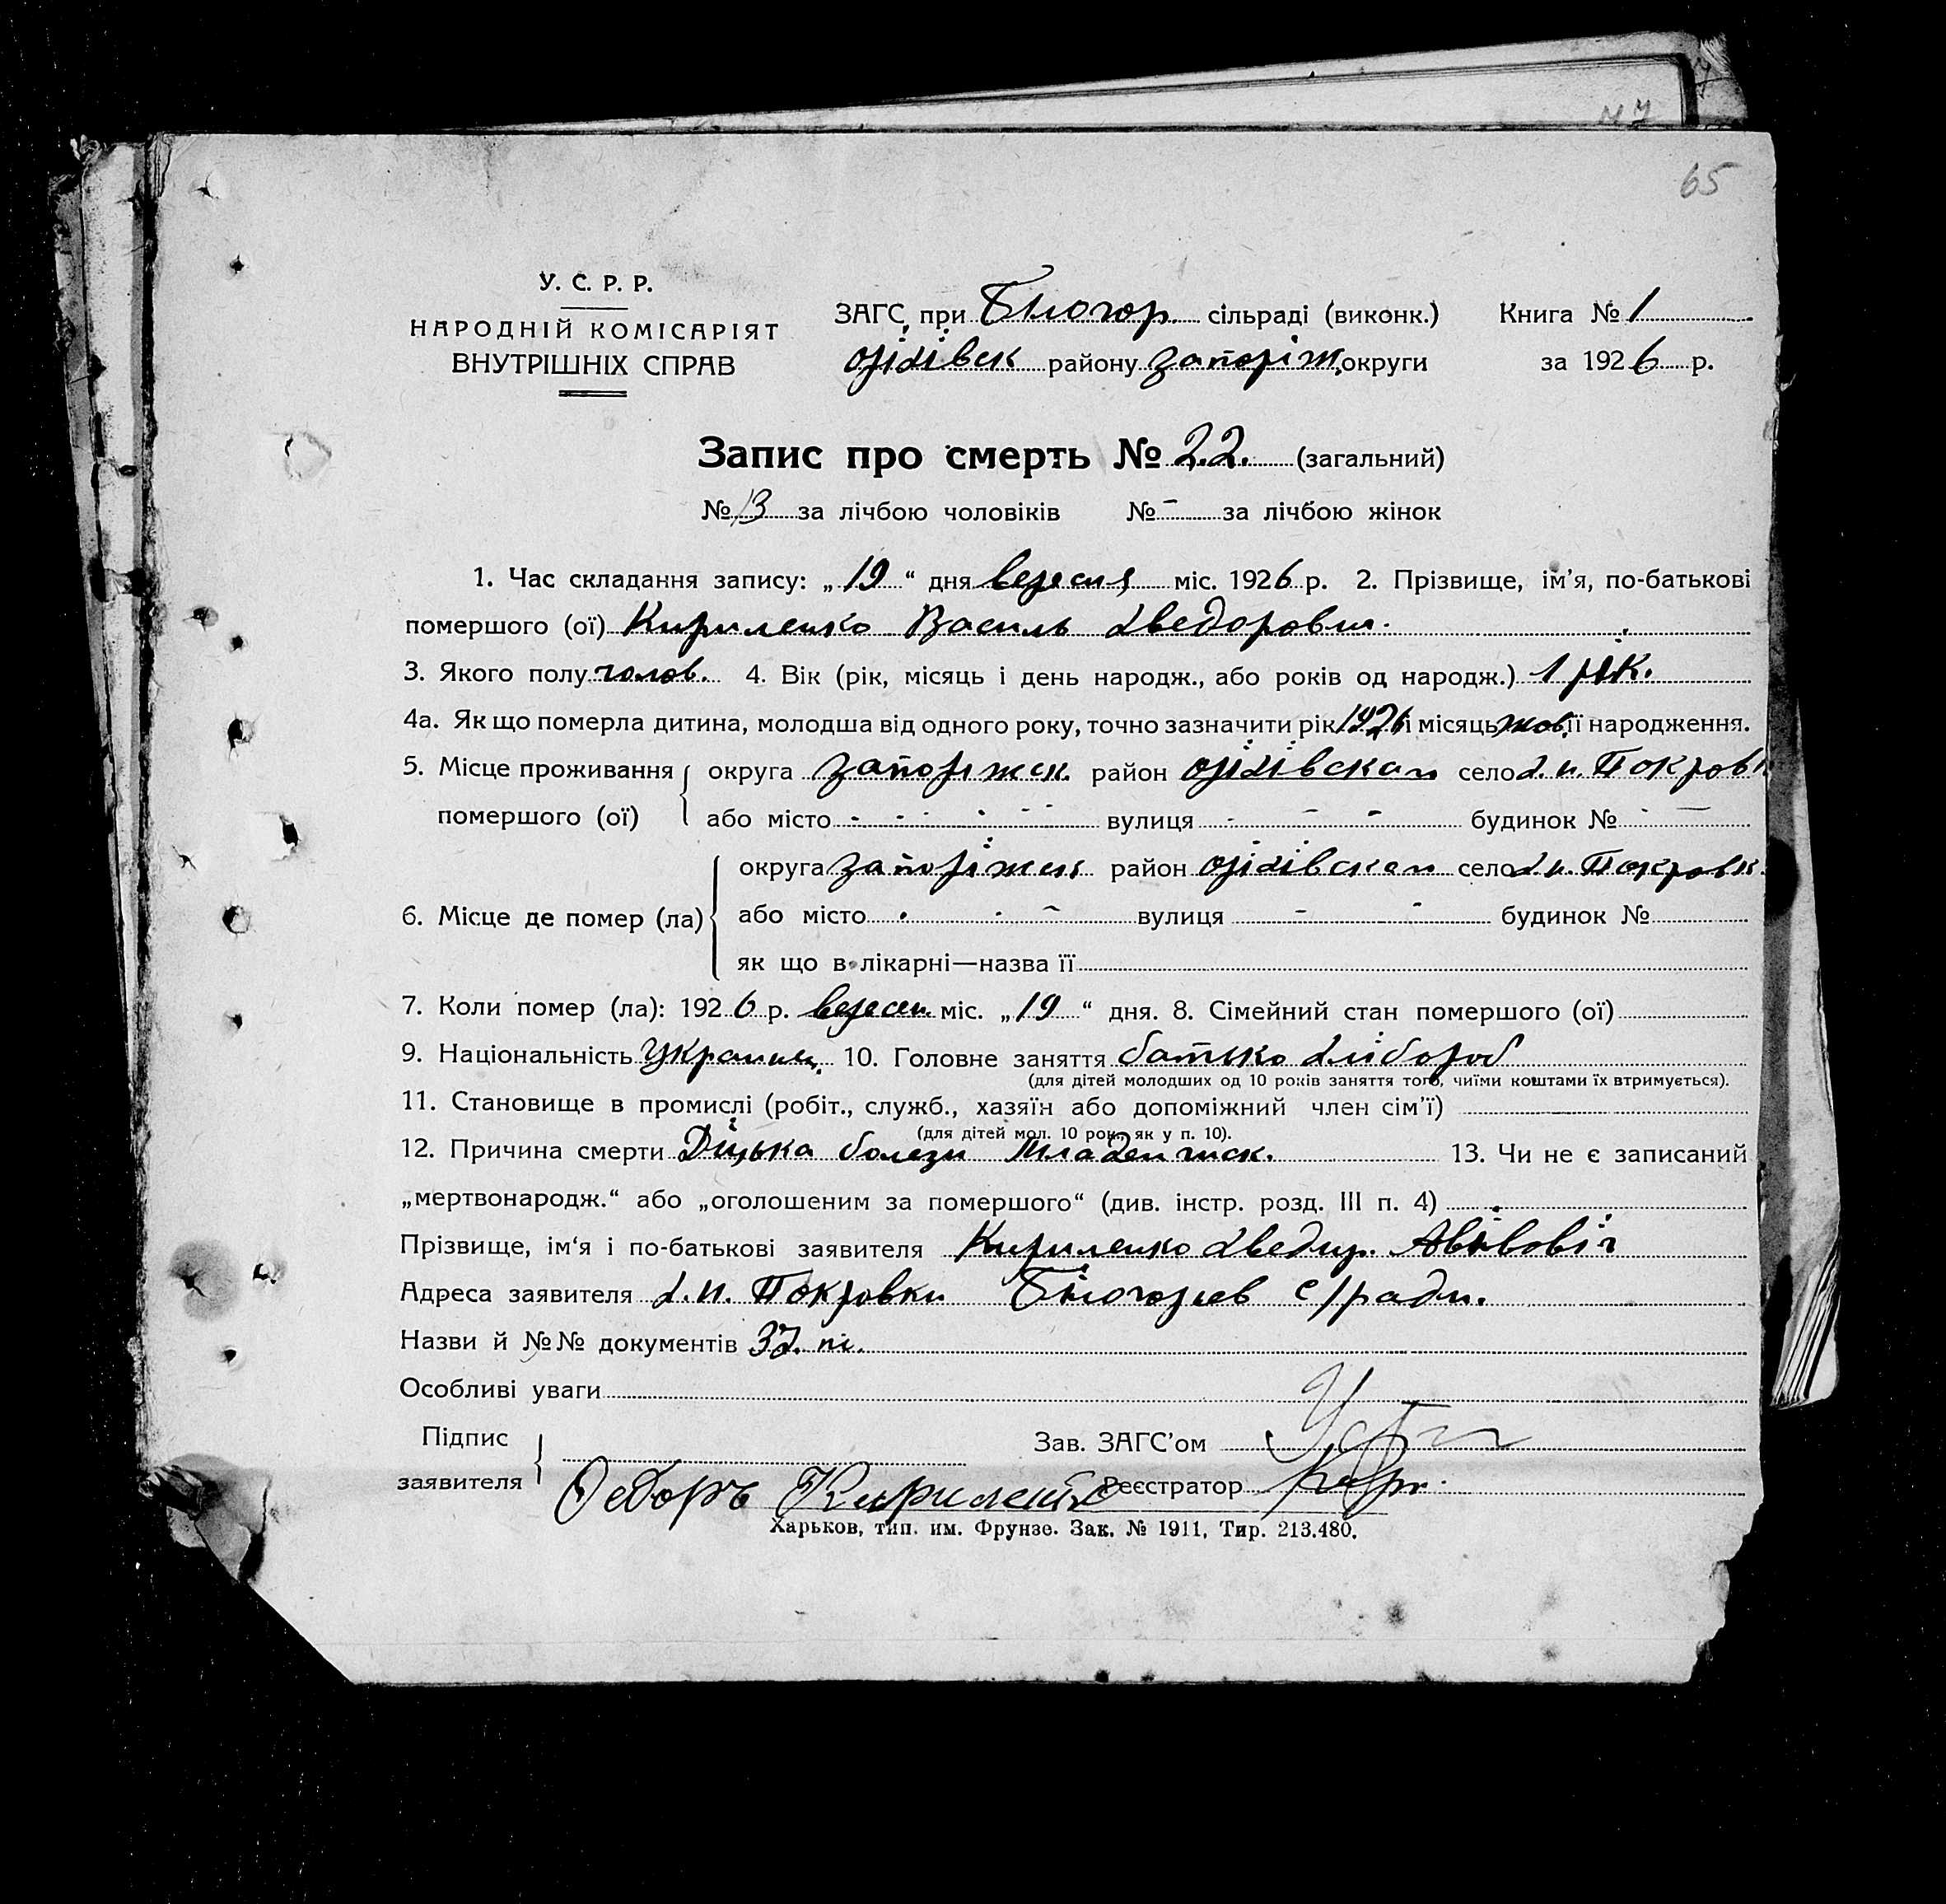 № 7
65
У. С. Р. Р.
НАРОДНІЙ КОМІСАРІЯТ
ВНУТРІШНІХ СПРАВ
ЗАГС при Білогор. сільраді (виконк.) Книга № 1
оріхівск району запоріж. округи за 1926 р.
Запис про смерть № 22. (загальний)
№ 13 за лічбою чоловіків № - за лічбою жінок
1. Час складання запису: „19“ дня вересня міс. 1926 р. 2. Прізвище, ім’я, по-батькові
помершого (ої) Кириленко Василь Хведорови.
3. Якого полу чолов. 4. Вік (рік, місяць і день народж., або років од народж.) 1 рік.
4а. Як що померла дитина, молодша від одного року, точно зазначити рік і місяць жов. її народження.
5. Місце проживання округа запоріжск. район оріхівскаго село х. н. Покровк
помершого (ої) або місто - - - вулиця - - - будинок № - —
округа запоріжск район оріхівскаго село х н. Покровк.
6. Місце де помер (ла) або місто - - - вулиця - - будинок №
як що в лікарні—назва її
7. Коли помер (ла): 1926 р. вересн міс. „19“ дня. 8. Сімейний стан помершого (ої)
9. Національність Украинец. 10. Головне заняття батько хлібороб
(для дітей молодших од 10 років заняття того, чиїми коштами їх втримується).
11. Становище в промислі (робіт., служб., хазяїн або допоміжний член сім’ї)
(для дітей мол. 10 рок., як у п. 10).
12. Причина смерти Діцька болезн Младенческ. 13. Чи не є записаний
„мертвонародж.“ або „оголошеним за помершого“ (див. інстр. розд. III п. 4)
Прізвище, ім‘я і по-батькові заявителя Кириленко Хведир.
Адреса заявителя х. н. Покровки Білогорев с/ради.
Назви й №№ документів 37.
Особливі уваги
Підпис Зав. ЗАГС’ом
заявителя Федоръ Кириленко Реєстратор
Харьков, тип. им. Фрунзе. Зак. № 1911, Тир. 213.480.